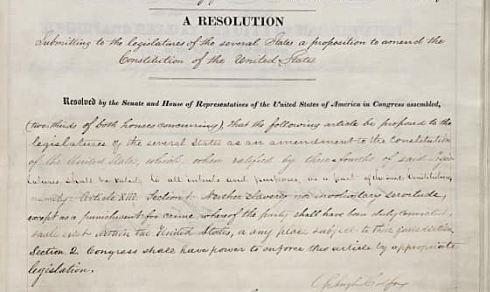 A RESOLUTION
Submitting to the legislatures of the several States a proposition to amend the
Constitution of the United States.
Resolved by the Senate and House of Representatives of the United States of America in Congress assembled,
(two-thirds of both houses concurring), that the following article be proposed to the
legislatures of the several States as an amendment to the Constitution
of the United States, which, when ratified by three-fourths of said Legis-
latures shall be valid, to all intents and purposes, as a part of the said Constitution,
namely: Article XIII. Section 1. Neither slavery nor involuntary servitude,
except as a punishment for crime whereof the party shall have been duly convicted,
shall exist within the United States, or any place subject to their jurisdiction.
Section 2. Congress shall have power to enforce this article by appropriate
legislation.